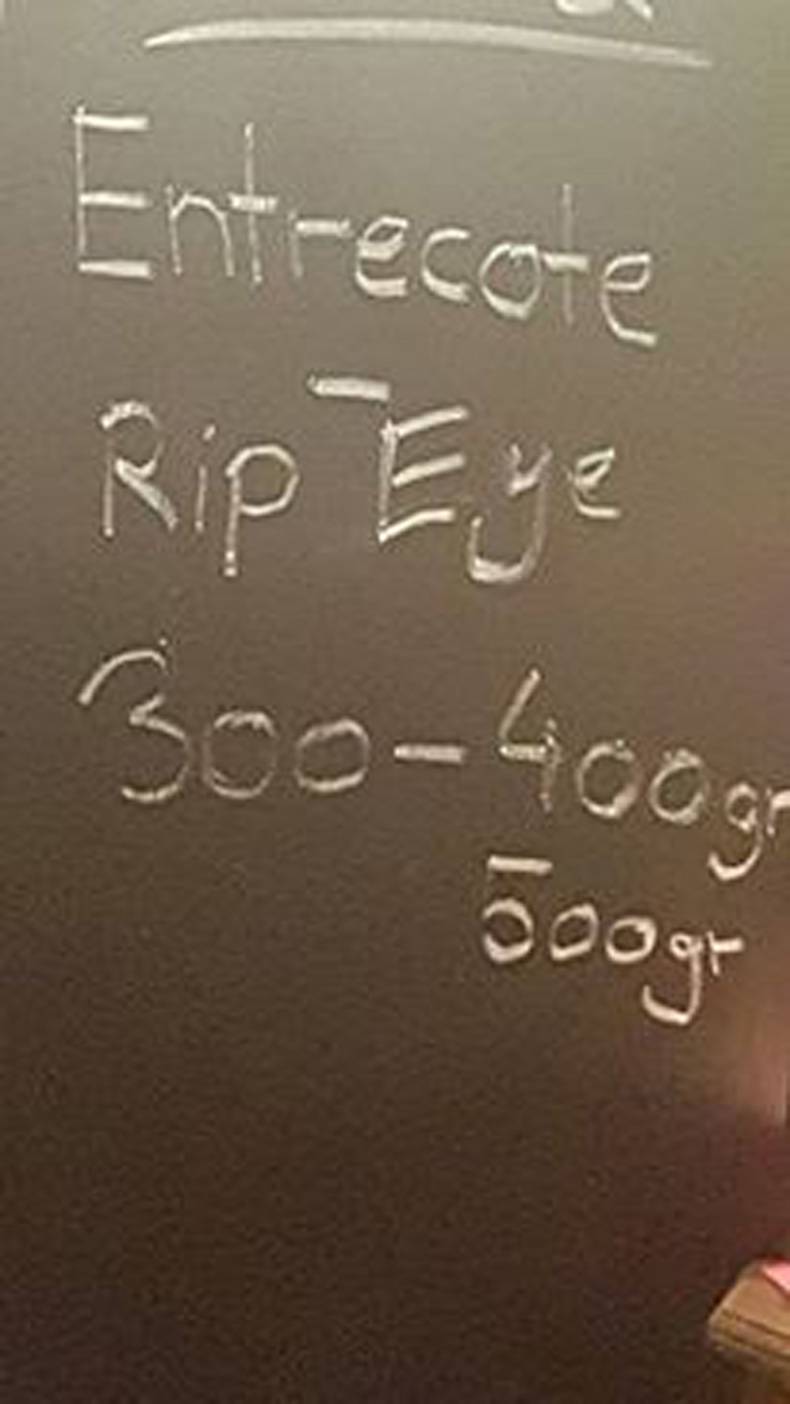 Entrecote
Rip-Eye
300-400gr
500gr